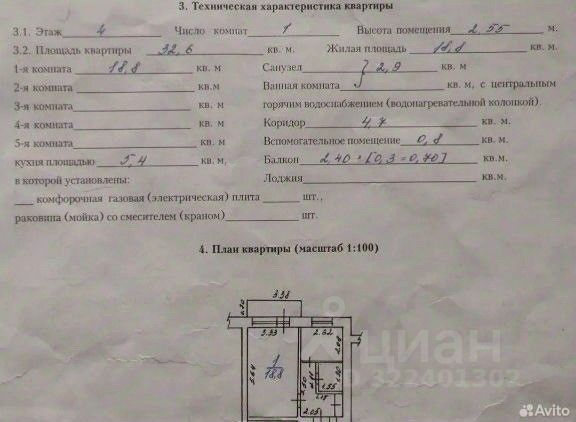 3. Техническая характеристика квартиры
3.1. Этаж 4 Число комнат 1 Высота помещения 2,55 м.
3.2. Площадь квартиры 32,6 кв. м. Жилая площадь 18,8 кв. м.
1-я комната 18,8 кв. м Санузел } 2,9 кв. м
2-я комната кв.м Ванная комната кв. м, с центральным
3-я комната кв. м горячим водоснабжением (водонагревательной колонкой)
4-я комната кв. м Коридор 4,7 кв. м.
5-я комната кв. м Вспомогательное помещение 0,8 кв. м.
кухня площадью 5,4 кв. м, Балкон 2,40 : [0,3 = 0,70] кв.м.
в которой установлены: Лоджия кв.м.
комфорочная газовая (электрическая) плита шт.,
раковина (мойка) со смесителем (краном) шт.
4. План квартиры (масштаб 1:100)
3.38
0.70
3.33 2.32
5.64 1 18,8
1.55
2.05 1.18
циан
322401302
Avito